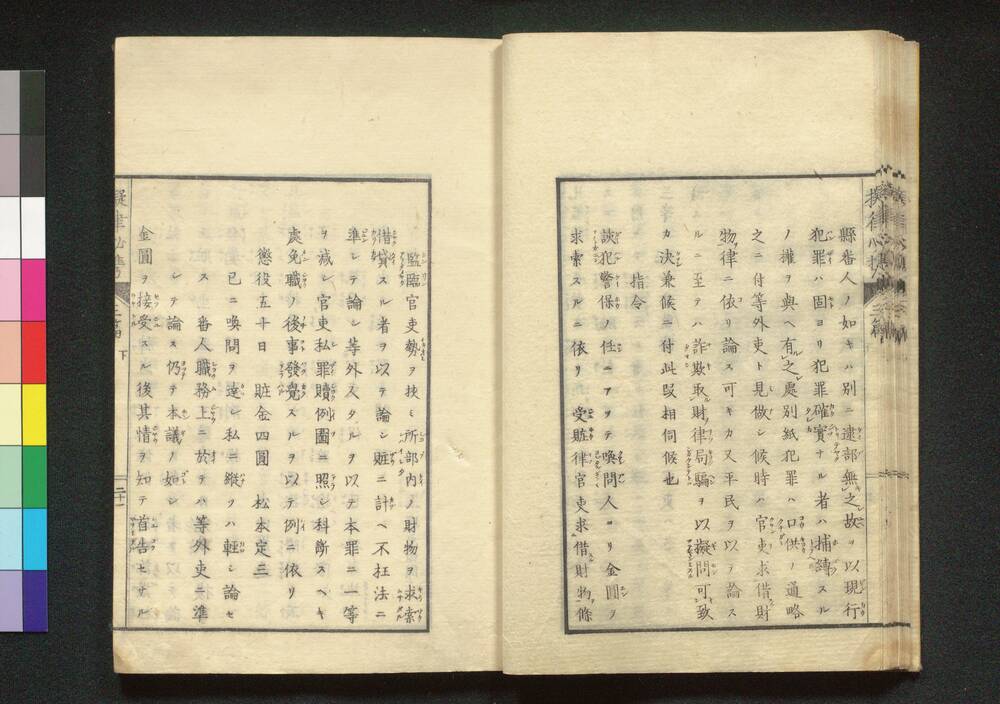 縣番人ノ如キハ別ニ逮部無之故ヲ以現行
犯罪ハ固ヨリ犯罪確實ナル者ハ捕縳スル
ノ權ヲ與ヘ有之處別紙犯罪ハ口供ノ通略
之ニ付等外吏ト見做シ候時ハ官吏求借財
物律ニ依リ論ス可キカ又平民ヲ以テ論ス
ルニ至テハ詐欺取財律局騙ヲ以擬問可致
カ決兼候ニ付此段相伺候也
指令
該犯警保ノ任ニアツテ喚問人ヨリ金圓ヲ
求索スルニ依リ 受贓律官吏求借財物條
監臨官吏勢ヲ挾ミ所部内ノ財物ヲ求索
借貸スル者ヲ以テ論シ贓ニ計ヘ不枉法ニ
準シテ論シ等外吏タルヲ以テ本罪ニ一等
ヲ減シ官吏私罪贖例圖ニ照シ科斷スヘキ
處免職ノ後事發覺スルヲ以テ例ニ依リ
懲役五十日 贓金四圓 松本定三
已ニ喚問ヲ遂シ私ニ縱ツハ輕シ論セ
ス 番人職務上ニ於テハ等外吏ニ準
シテ論ス仍テ本議ノ如シ
金圓ヲ接受スル後其情ヲ知テ首告セサル
擬律必携
三篇 下
二十一